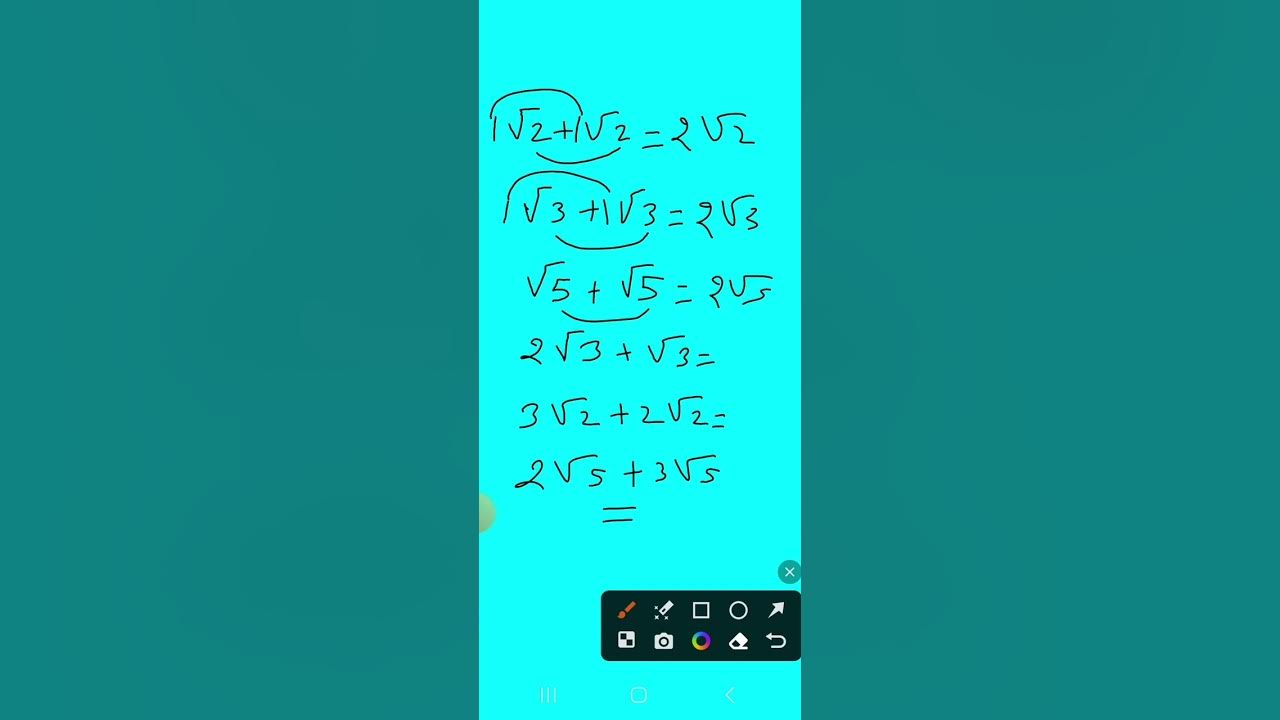 1√2+1√2=2√2
1√3+1√3=2√3
√5+√5=2√5
2√3+√3=
3√2+2√2=
2√5+3√5
=